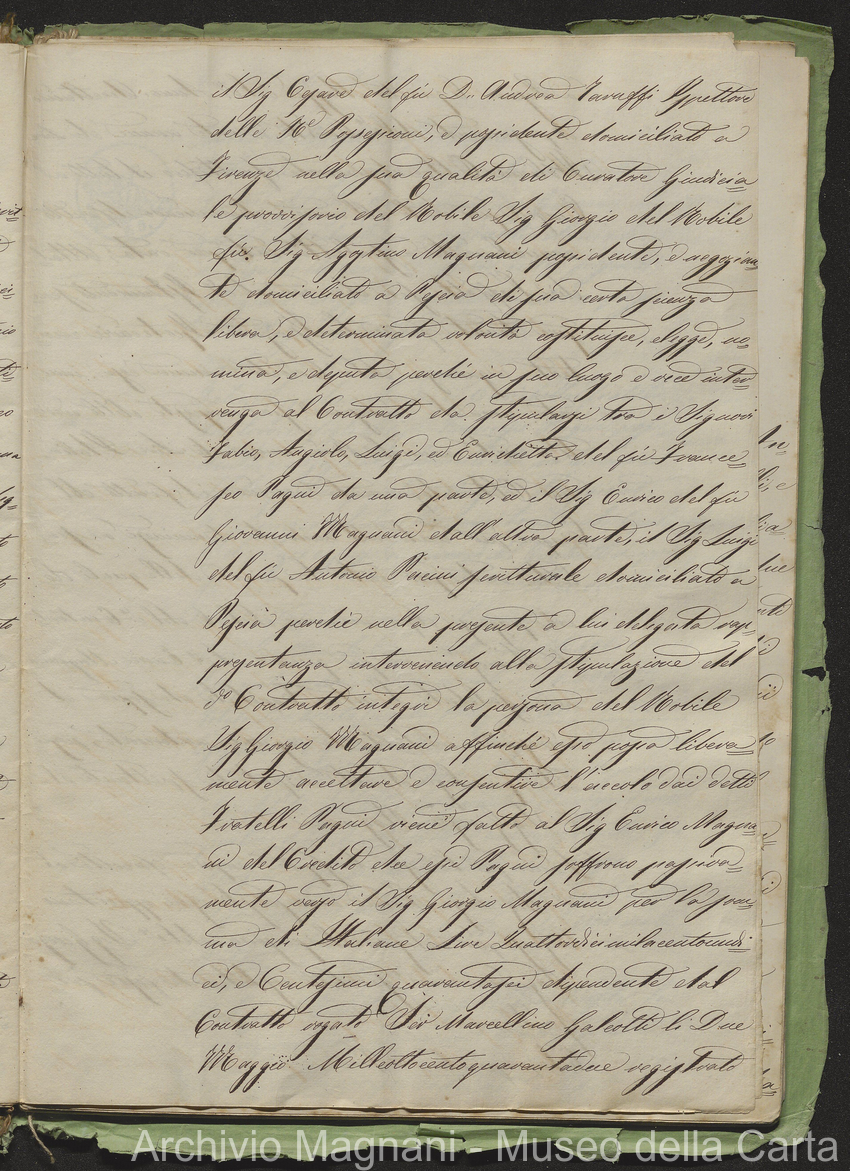 il Sig Cesare del fu D.r Andrea Taruffi Ispettore
delle R.e Possessioni, e possidente domiciliato a
Firenze nella sua qualità di Curatore Giudicia=
le provvisorio del Nobile Sig Giorgio del Nobile
fu Sig Agostino Magnani possidente, e negozian=
te domiciliato a Pescia di sua certa scienza
libera, e determinata volontà costituisce, elegge, no=
mina, e deputa perché in suo luogo e vece inter=
venga al Contratto da stipularsi tra i Signori
Fabio, Angiolo, Luigi, ed Enrichetta del fu France=
sco Pagni da una parte, ed il Sig Enrico del fu
Giovanni Magnani dall'altra parte, il Sig Luigi
del fu Antonio Pacini scritturale domiciliato a
Pescia perché nella presente a lui delegata rap=
presentanza intervenendo alla stipulazione del
d.o Contratto integri la persona del Nobile
Sig Giorgio Magnani affinché esso possa libera=
mente accettare e consentire l'accollo dai detti
Fratelli Pagni viene fatto al Sig Enrico Magna=
ni del Credito che essi Pagni
mente verso il Sig Giorgio Magnani per la som=
ma di Italiane Lire Quattordicimilacentoundi
ci, e Centesimi quarantasei dipendente dal
Contratto rogato Ser Marcellino Galeotti li Due
Maggio Milleottocentoquarantadue registrato
Archivio Magnani - Museo della Carta